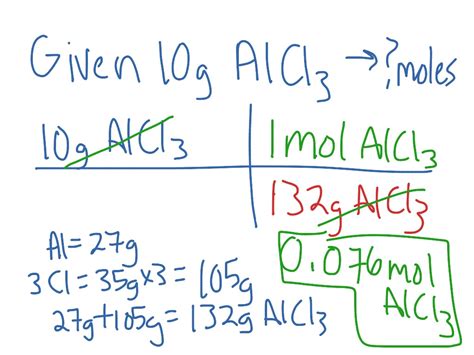 Given 10g AlCl₃ → ? moles
10g AlCl₃
1mol AlCl₃
132g AlCl₃
Al = 27g
3 Cl = 35g x 3 = 105g
27g + 105g = 132g AlCl₃
0.076 mol
AlCl₃